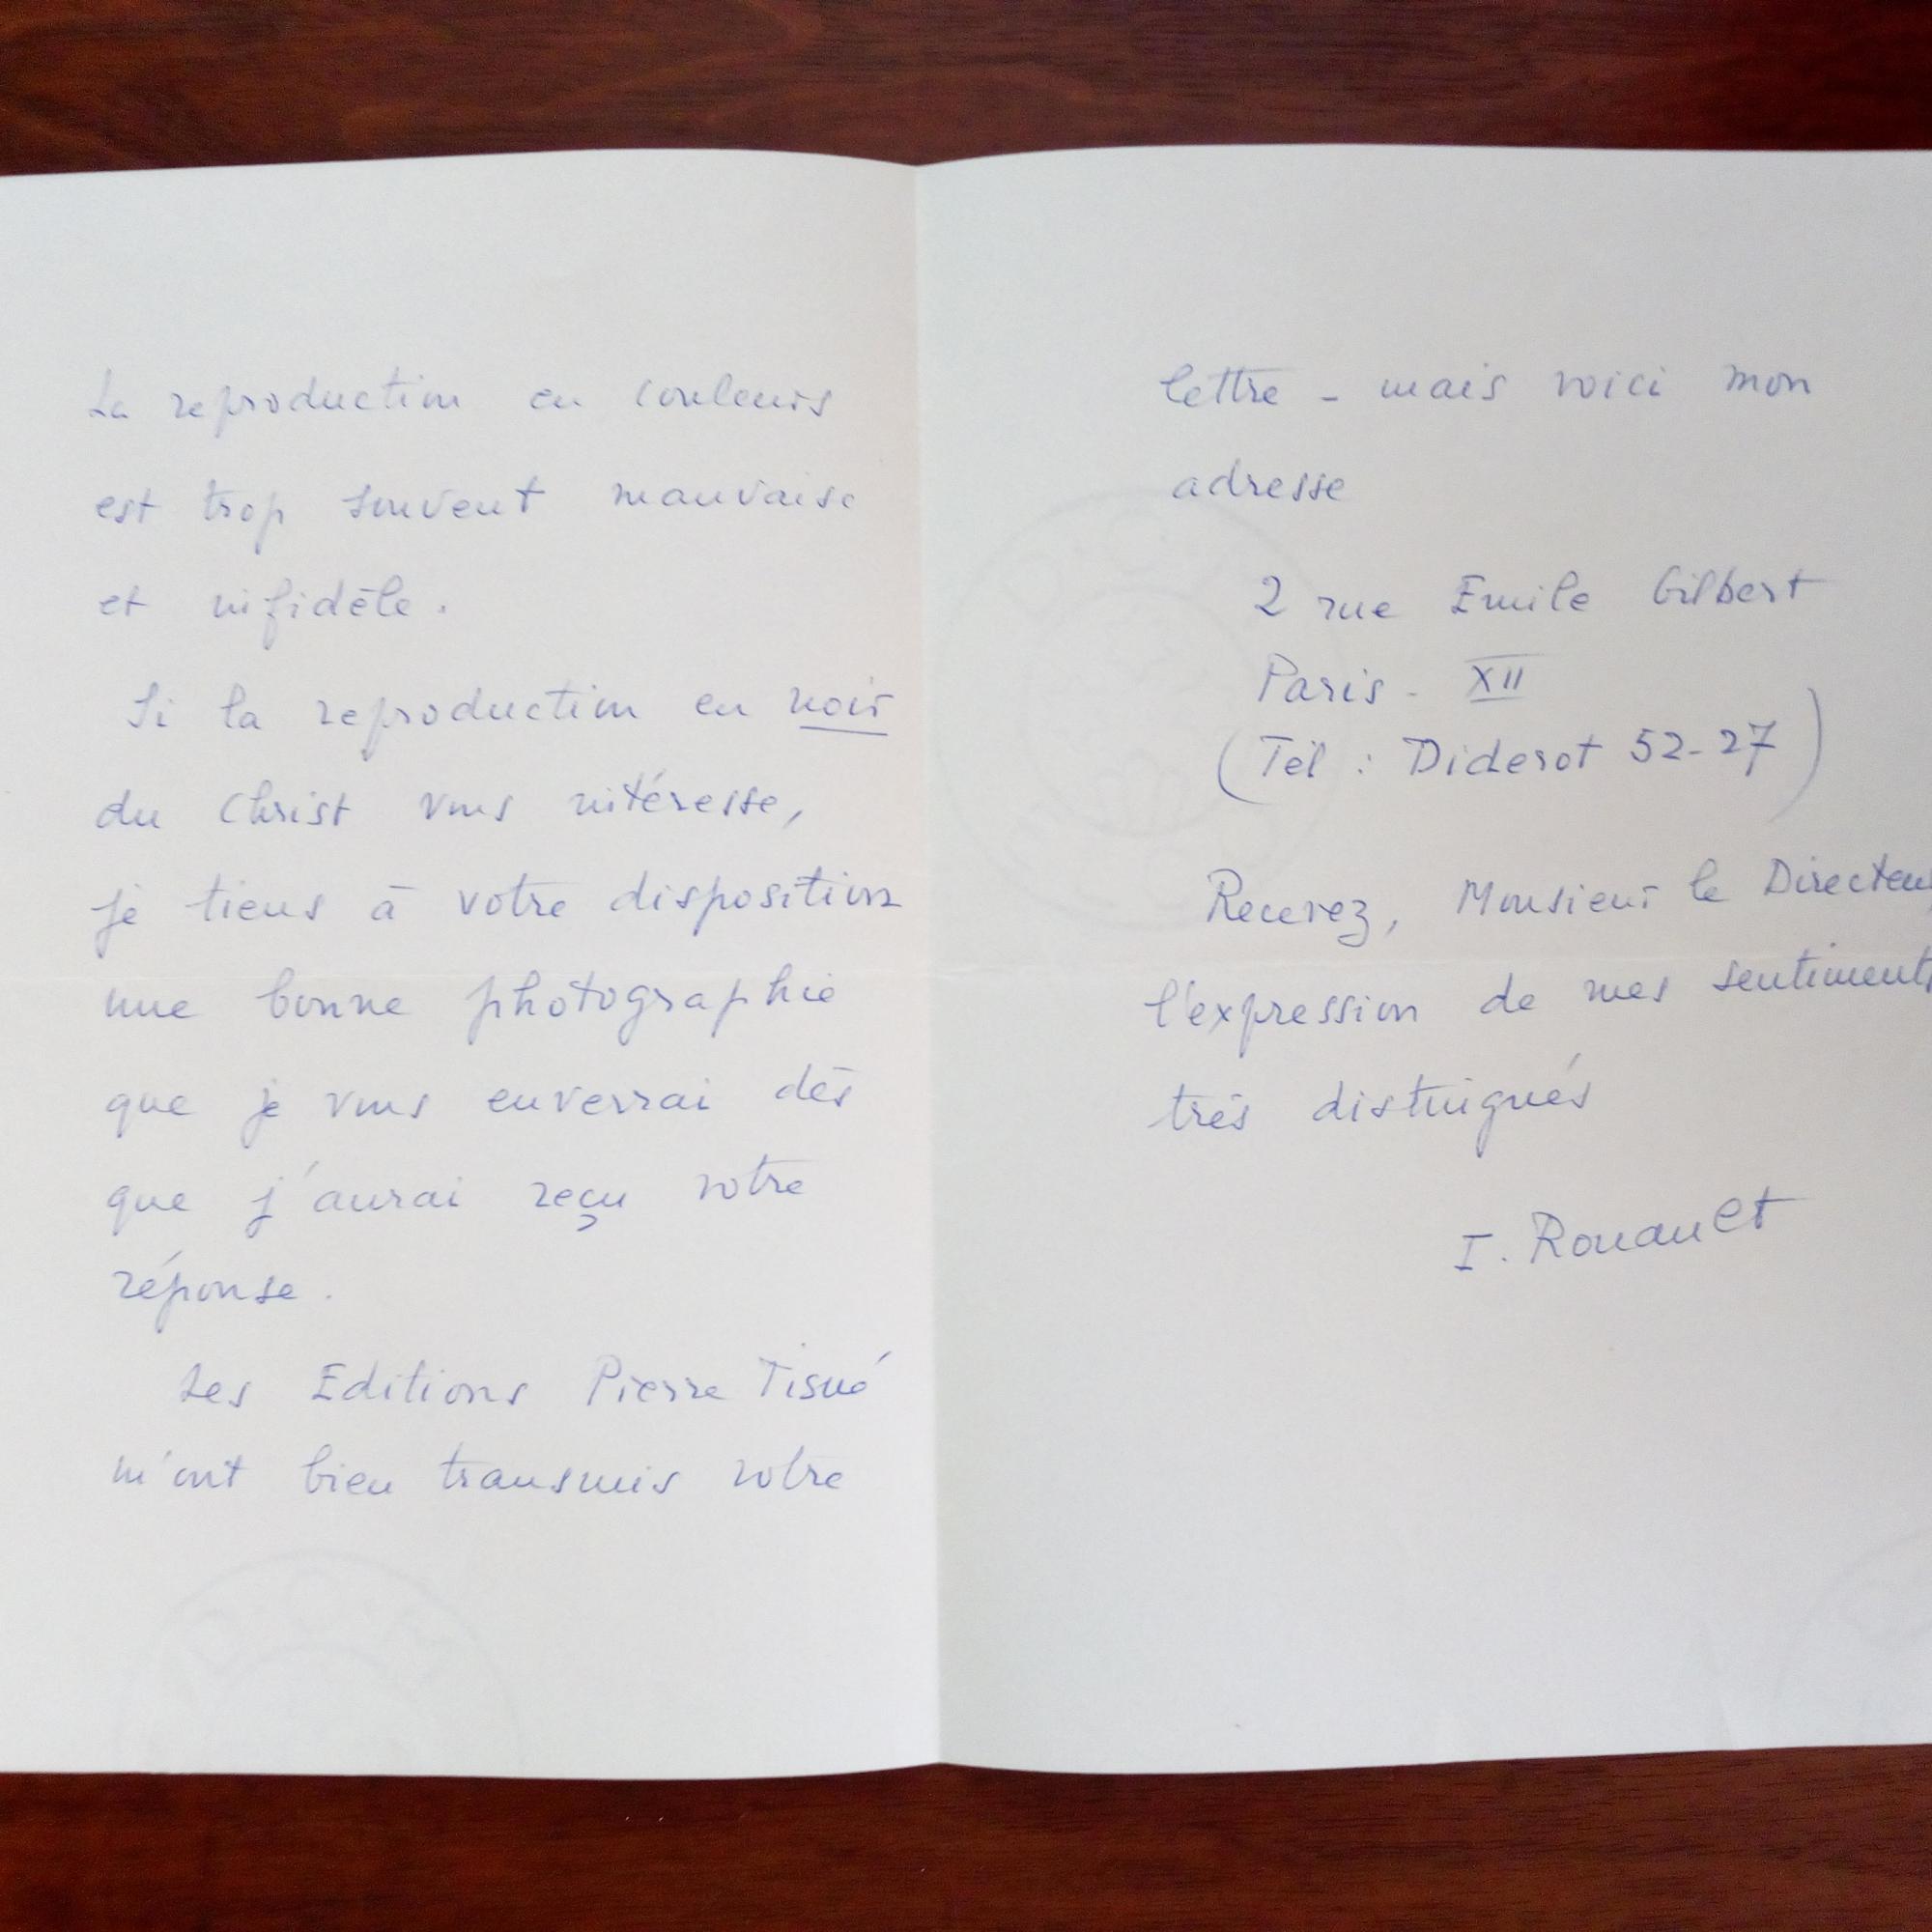 La reproduction en couleurs
est trop souvent mauvaise
et infidèle.
Si la reproduction en noir
du Christ vous intéresse,
je tiens à votre disposition
une bonne photographie
que je vous enverrai dès
que j'aurai reçu votre
réponse.
Les Editions Pierre Tisné
m'ont bien transmis votre
lettre - mais voici mon
adresse
2 rue Emile Gilbert
Paris - XII
(Tél : Diderot 52-27)
Recevez, Monsieur le Directeur
l'expression de mes sentiments
très distingués
I. Rouault